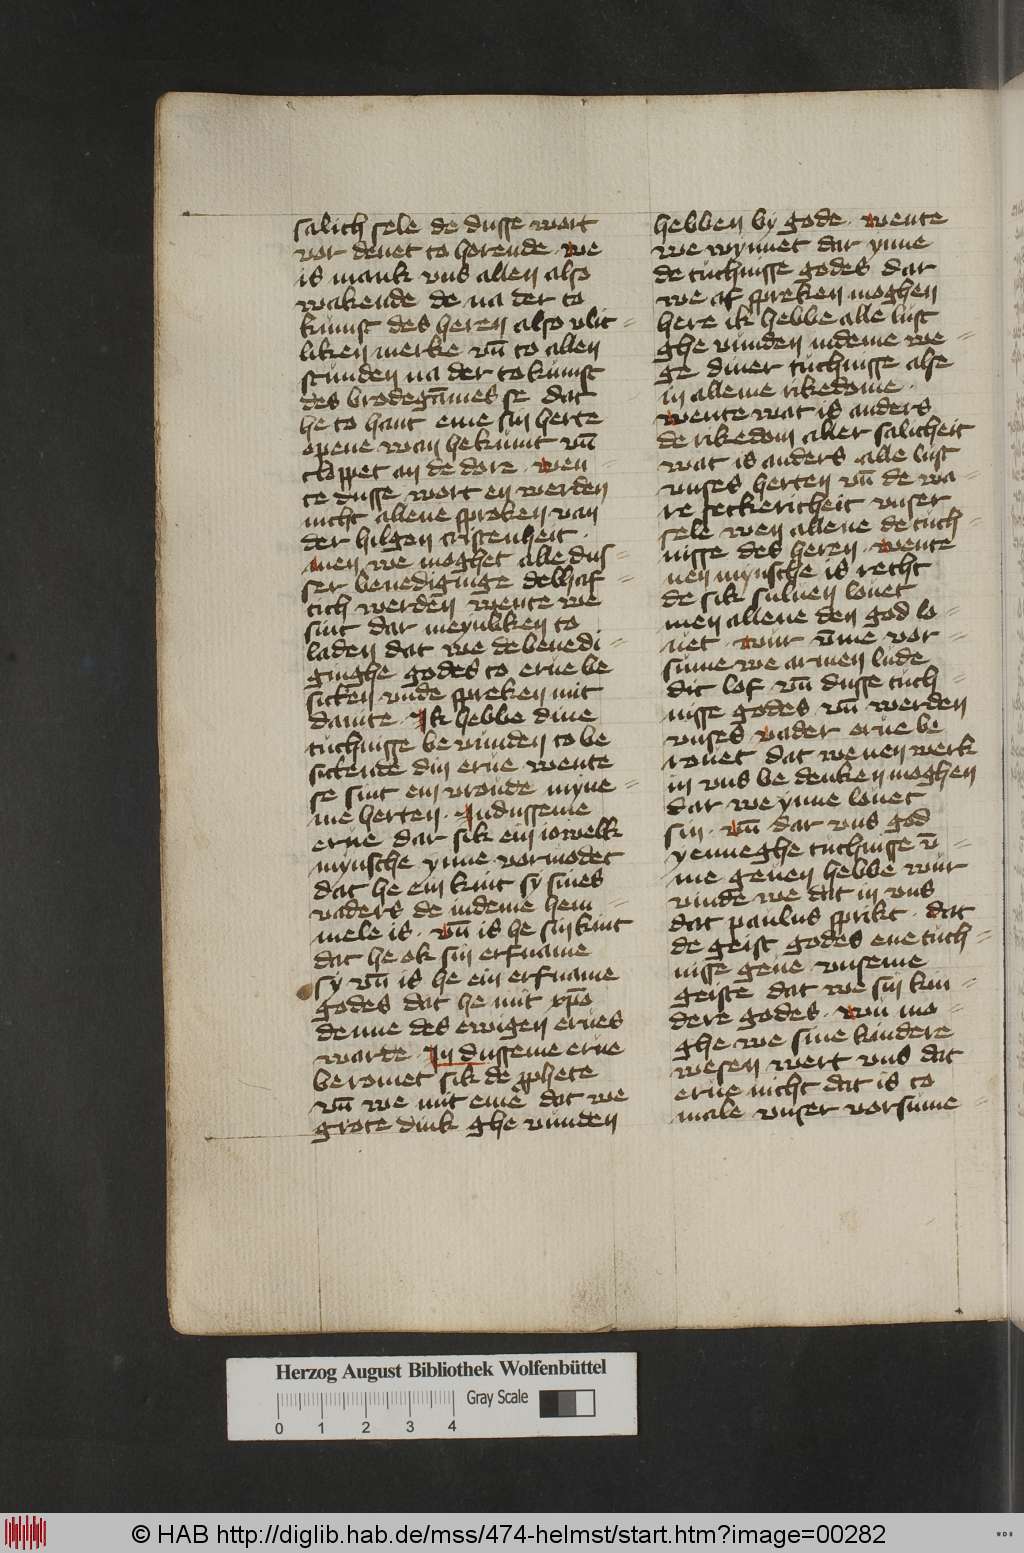 salich sele de dusse wort
vor denet to horende · we
is mank vns allen also
wakende de na der to
kumst des heren also vlit=
liken merke vn̄ to allen
stunden na der to kumst
des brodegāmes se dat
he to hant eme sin herte
opene wan he kumt vn̄
cloppet an de dore · wen
te dusse wort en werden
nicht allene sproken van
der hilgen cristenheit ·
men we moghet alle dus=
ser benediginge delhaf=
tich werden wente we
sint dar meynliken to
laden dat we de benedi=
ginghe godes to erue be
sitten vnde spreken mit
damte · Ik hebbe dine
tuchnisse be vunden to be
sittende din erue wente
se sint ein vroude myne=
me herten · In dusseme
erue dar sik ein iowelk
mynsche ynne vormodet
dat he ein kint sy sines
vaders de indeme hem=
mele is · vn̄ is he sin kint
dat he ok sin erfname
sy vn̄ is he ein erfname
godes dat he mit xp̄o
denne des ewigen erues
warde · In dusseme erue
beromet sik de p̄phete
vn̄ we mit emē dat we
grote dink ghe vunden
hebben by gode · wente
we wynnet dar ynne
de tuchnisse godes dar
we af spreken moghen
here ik hebbe alle lust
ghe vunden indeme we=
ge diner tuchnisse alse
in alleme rikedome ·
wente wat is anders
de rikedom aller salicheit
wat is anders alle lust
vnses herten vn̄ de wa=
re seckericheit vnser
sele wen allene de tuch=
nisse des heren · wente
nen mynsche is recht
de sik suluen louet
men allene den god lo=
uet · wur v̄me vor=
sume we armen lude
dit lof vn̄ dusse tuch=
nisse godes vn̄ werden
vnses vader erue be
rouet dat we nen werk
in vns be denken moghen
dar we ynne louet
sin · vn̄ dar vns god
yenneghe tuchnisse v̄=
me geuen hebbe wur
vinde we dat in vns
dat paulus sprikt · dat
de geist godes ene tuch=
nisse geue vnseme
geiste dat we sin kin=
dere godes · wu mo=
ghe we sine kindere
wesen wert vns dat
erue nicht dat is to
male vnser vorsume=
Herzog August Bibliothek Wolfenbüttel
Gray Scale
0 1 2 3 4
© HAB http://diglib.hab.de/mss/474-helmst/start.htm?image=00282